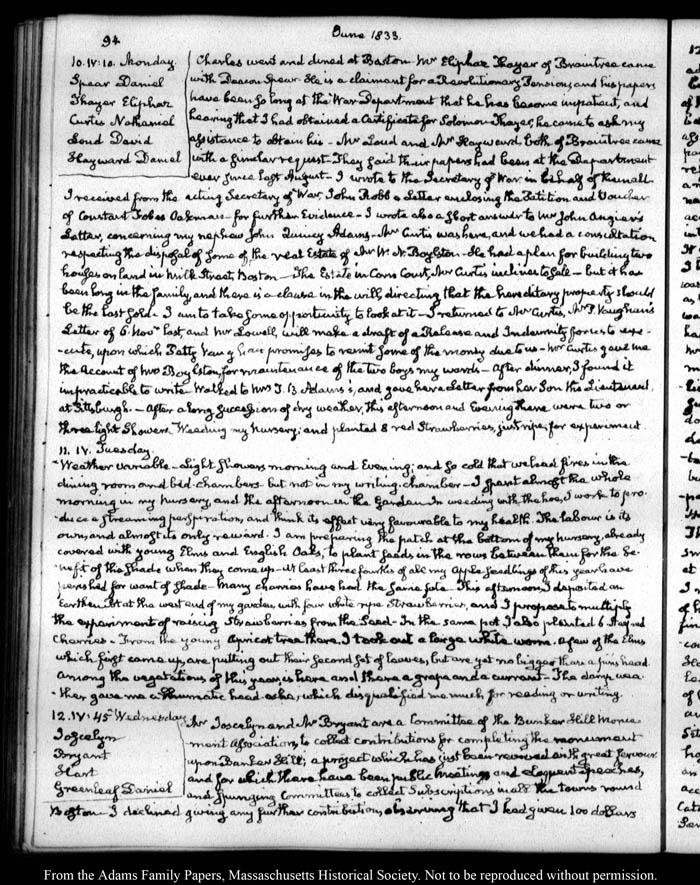 94
June 1833.
10. IV: 10. Monday.
Spear Daniel
Thayer Eliphaz
Curtis Nathaniel
Loud David
Hayward Daniel
Charles went and dined at Boston. Mr Eliphaz Thayer of Braintree came
with Deacon Spear. He is a claimant for a Revolutionary Pension, and his papers
have been so long at the War Department that he has become impatient, and
hearing that I had obtained a Certificate for Solomon Thayer, he came to ask my
assistance to obtain his - Mr Loud and Mr Hayward both of Braintree came
with a similar request. They said their papers had been at the Department
ever since last August - I wrote to the Secretary of War in behalf of them all
I received from the acting Secretary of War, John Robb a Letter enclosing the Petition and Voucher
of Constant Fobes Oakman - for further Evidence - I wrote also a short answer to Mr John Angier's
Letter, concerning my nephew John Quincy Adams - Mr Curtis was here, and we had a consultation
respecting the disposal of some of the real Estate of Mr W. N. Boylston - He had a plan for building two
houses on land in Milk Street, Boston - The Estate in Corn Court, Mr Curtis inclines to sell - but it has
been long in the family, and there is a clause in the will directing that the hereditary property should
be the last sold - I am to take some opportunity to look at it - I returned to Mr Curtis, Mr P. Vaughan's
Letter of 6. Novr last, and Mr Lowell, will make a draft of a Release and Indemnity for us to exe-
-cute, upon which Petty Vaughan promises to remit some of the money due to us - Mr Curtis gave me
the Account of Mrs Boylston, for maintenance of the two boys my wards - After dinner, I found it
impracticable to write - Walked to Mrs T. B. Adams's, and gave her a Letter from her Son the Lieutenant,
at Pittsburgh. - After a long succession of dry weather, this afternoon and Evening there were two or
three light showers. Weeding my Nursery; and planted 8 red Strawberries, just ripe, for experiment.
11. IV. Tuesday.
Weather variable - Light showers morning and Evening; and so cold that we had fires in the
dining room and bed-chambers but not in my writing-chamber - I spent almost the whole
morning in my Nursery, and the afternoon in the Garden. In weeding with the hoe, I work to pro-
-duce a streaming perspiration, and think its effect very favourable to my health. The labour is its
own, and almost its only reward. I am preparing the patch at the bottom of my nursery, already
covered with young Elms and English Oaks, to plant seeds in the rows between them for the be-
-nefit of the shade when they come up - At least three fourths of all my Apple seedlings of this year have
perished for want of shade - Many cherries have had the same fate - This afternoon I deposited an
Earthen Pot at the west end of my garden, with four white ripe Strawberries, and I propose to multiply
the experiment of raising Strawberries from the Seed - In the same pot I also planted 6
Cherries - From the young Apricot tree there, I took out a large white worm. A few of the Elms
which first came up, are putting out their second set of leaves, but are yet no bigger than a pin's head.
Among the vegetations of this year, is here and there a grape and a currant - The damp wea-
-ther gave me a rheumatic head-ache, which disqualified me much, for reading or writing.
12. IV: 45 Wednesday
Joscelyn
Bryant
Hart
Greenleaf Daniel
Mr Joscelyn and Mr Bryant are a Committee of the Bunker Hill Monu-
-ment Association, to collect contributions for completing the monument
upon Bunker Hill; a project which has just been revived with great fervour
and for which there have been public meetings and eloquent speeches,
and spunging Committees to collect Subscriptions in all the towns round
Boston - I declined giving any further contribution, observing that I had given 100 dollars
From the Adams Family Papers, Massachusetts Historical Society. Not to be reproduced without permission.